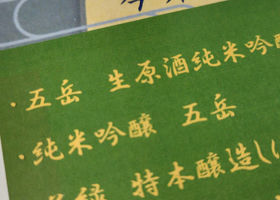 ・五岳 生原酒純米吟醸
・純米吟醸 五岳
緑 特本醸造